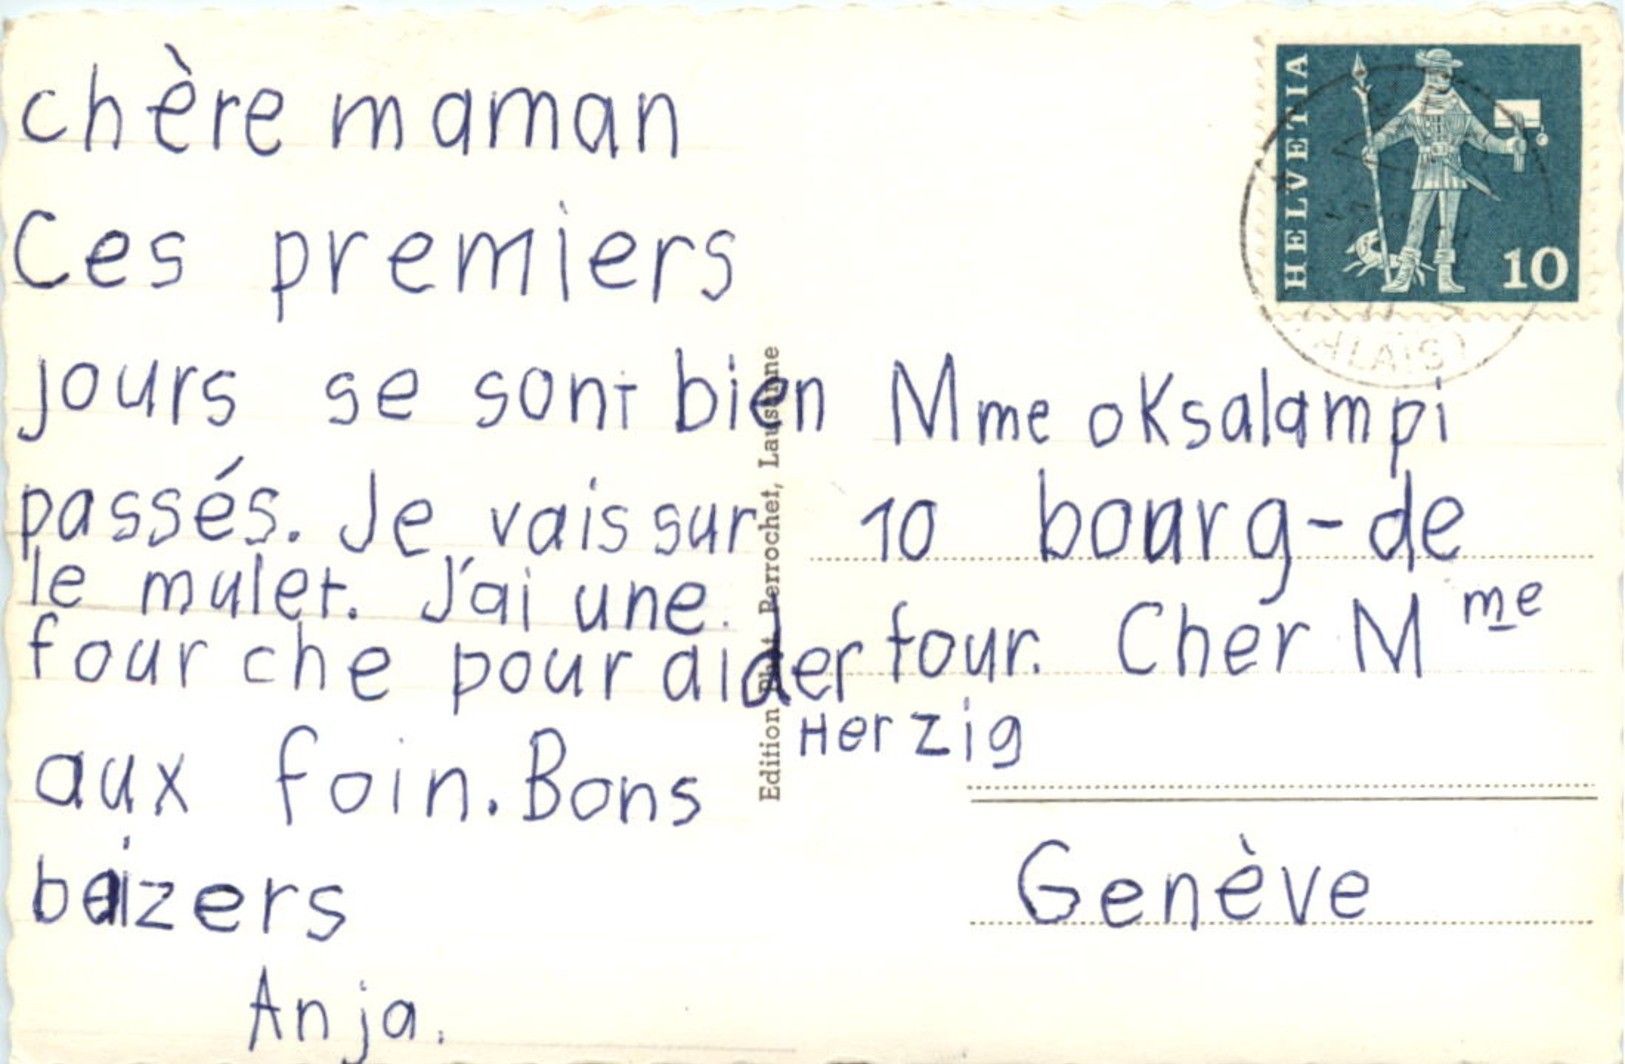 chère maman
Ces premiers
jours se sont bien
passés. Je vais sur
le mulet. J'ai une
fourche pour aider
aux foin. Bons
baizers
Anja.
Edition Perrochet, Lausanne
HELVETIA
10
Mme oksalampi
10 bourg-de
four. Cher Mme
Herzig
Genève